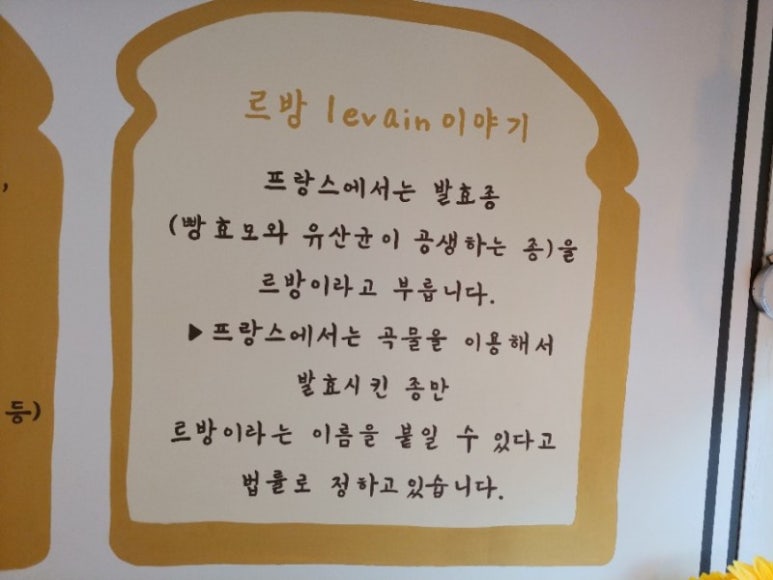 르방 levain이야기
프랑스에서는 발효종
(빵효모와 유산균이 공생하는 종)을
르방이라고 부릅니다.
▶프랑스에서는 곡물을 이용해서
발효시킨 종만
르방이라는 이름을 붙일 수 있다고
법률로 정하고있습니다.
,
등)